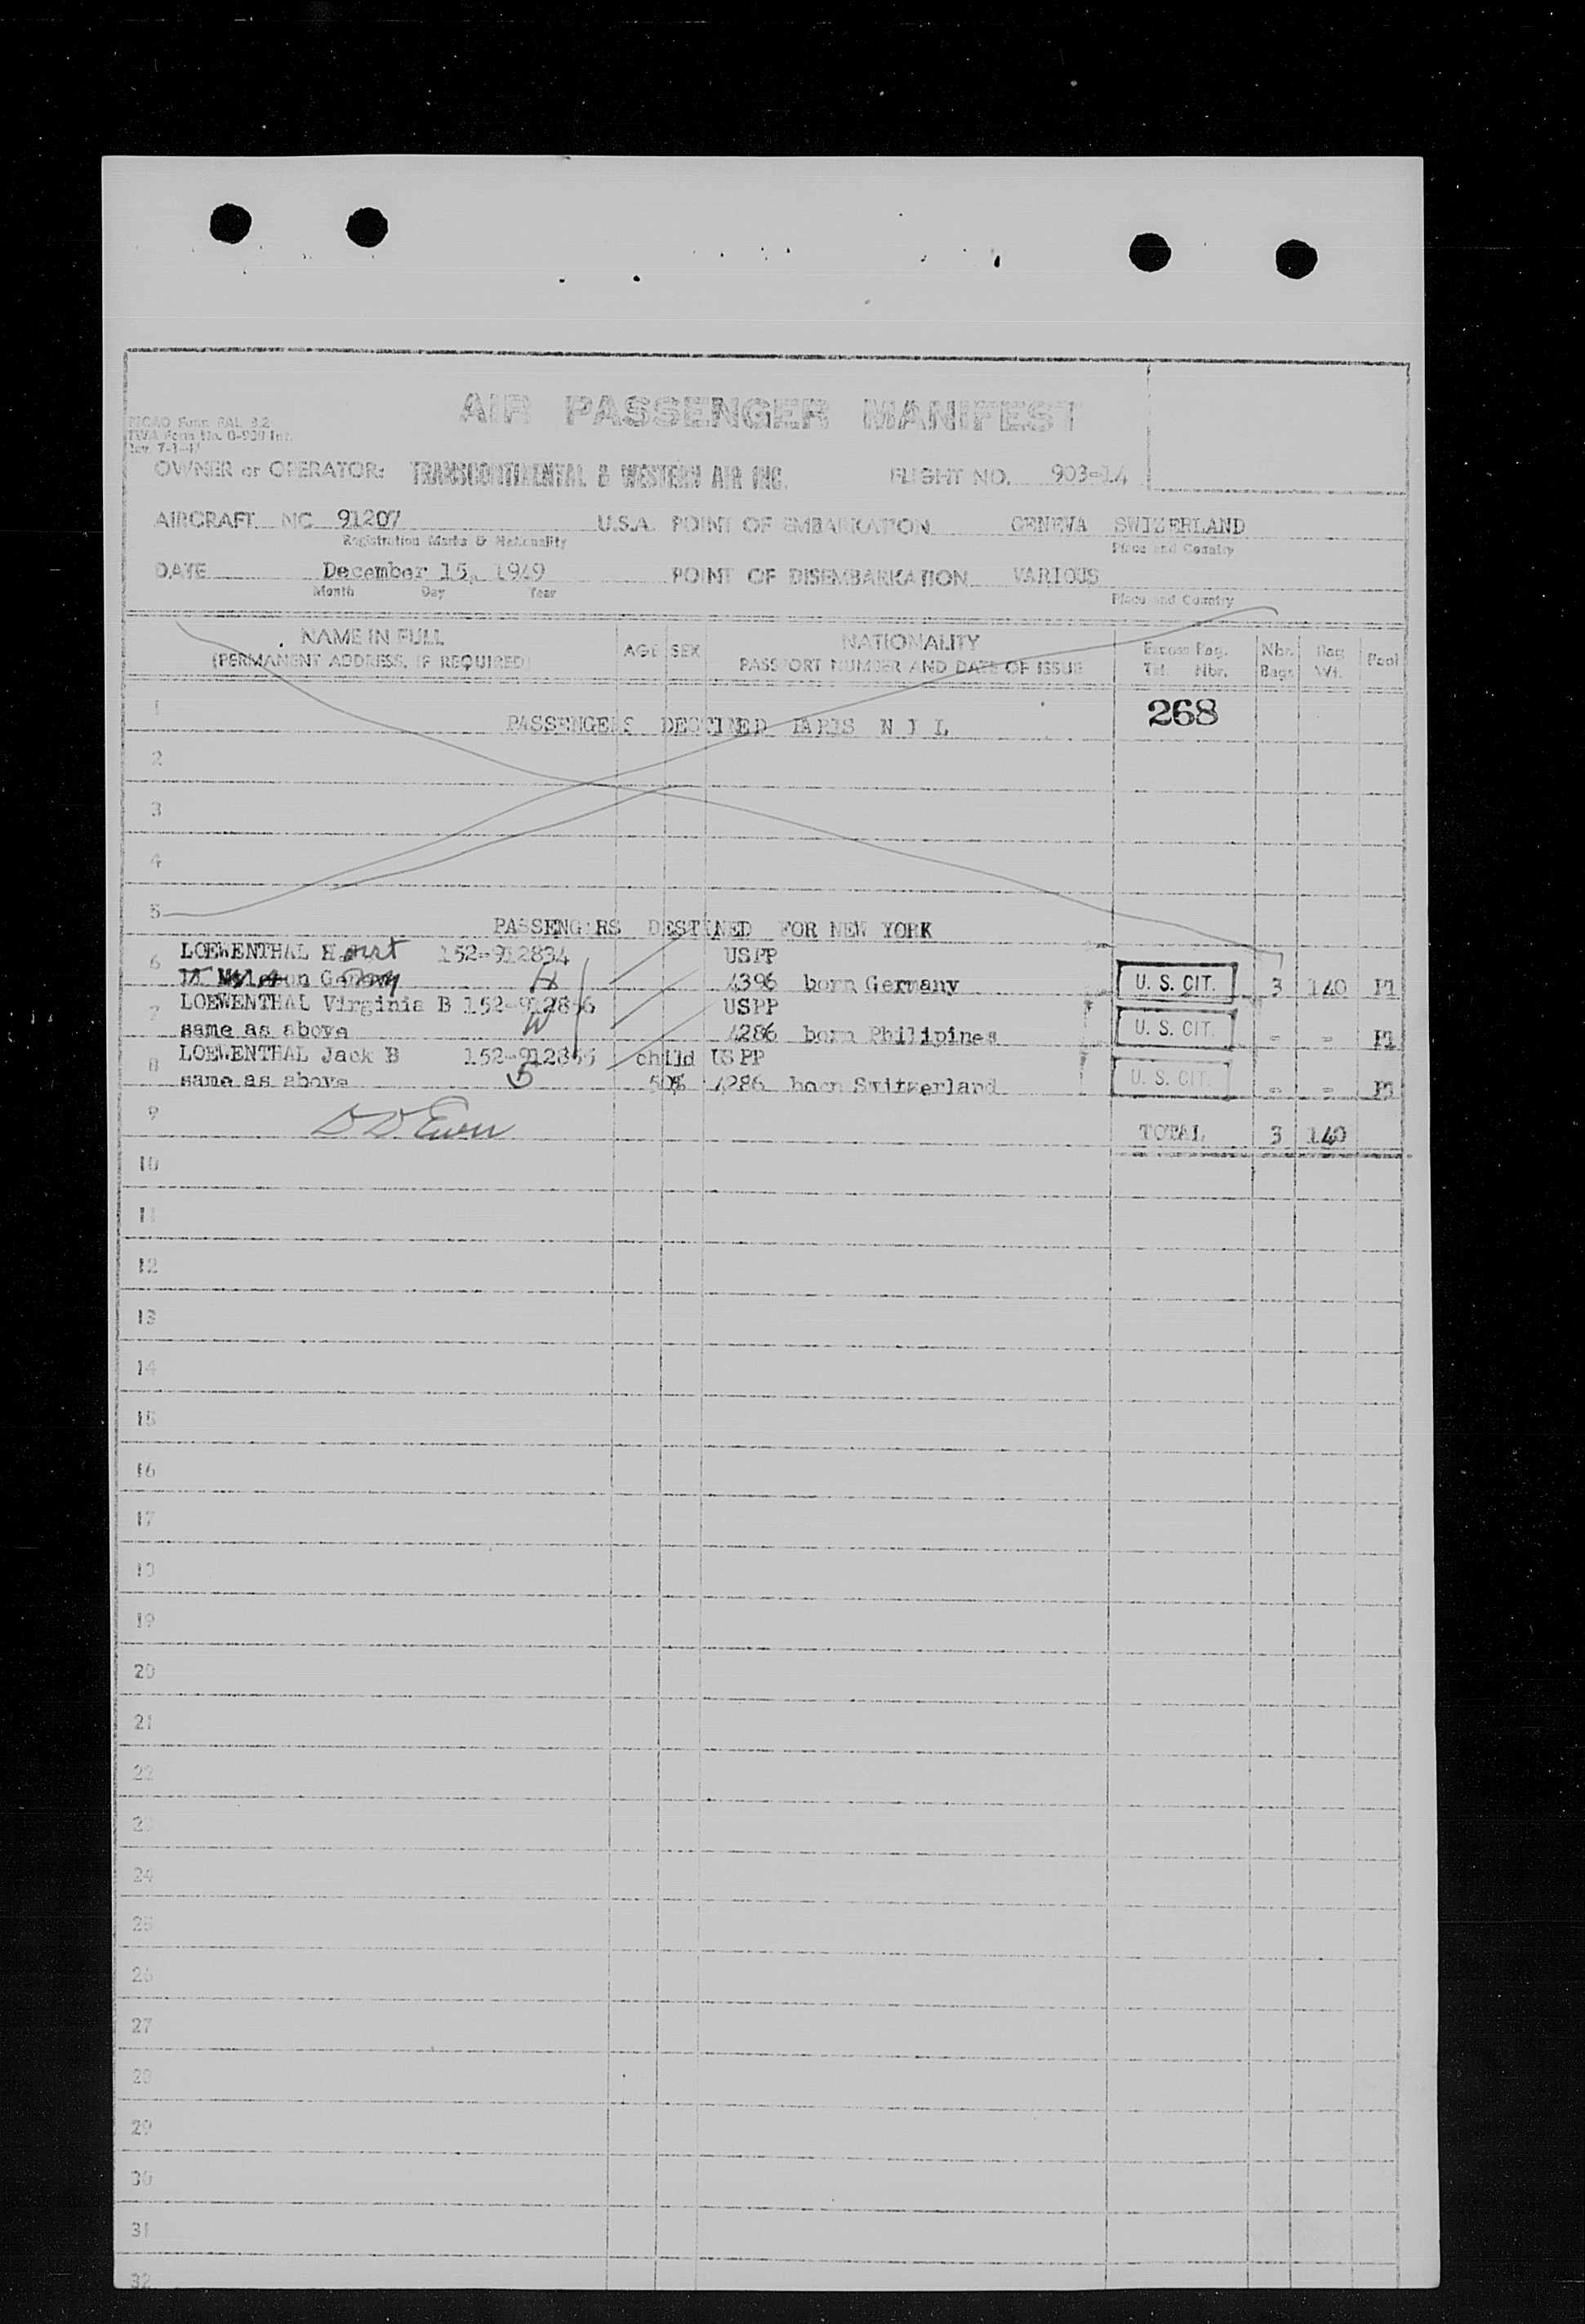 AIR PASSENGER MANIFEST
OWNER or OPERATOR: TRANSCONTINENTAL & WESTERN AIR INC. FLIGHT NO. 903-14
AIRCRAFT NC 91207 U.S.A. POINT OF EMBARKATION GENEVA SWIZERLAND
Registration Marks & Nationality Place and Country
DATE December 15, 1949 POINT OF DISEMBARKATION VARIOUS
Month Day Year Place and Country
NAME IN FULL AGE SEX NATIONALITY Excess Bag. Nbr. Bag Pool
(PERMANENT ADDRESS, IF REQUIRED) PASSPORT NUMBER AND DATE OF ISSUE Tkt. Nbr. Bags Wt.
1 PASSENGERS DESTINED PARIS N I L 268
2
3
4
5 PASSENGERS DESTINED FOR NEW YORK
6 LOEWENTHAL Horst 152-912834 USPP
H 4396 born Germany U. S. CIT. 3 140 P1
7 LOEWENTHAL Virginia B 152-912856 USPP
same as above W 4286 born Philipines U. S. CIT. - - P1
8 LOEWENTHAL Jack B child USPP
same as above 5 50% 4286 born Switzerland U. S. CIT. - - P1
9 TOTAL 3 140
10
11
12
13
14
15
16
17
18
19
20
21
22
23
24
25
26
27
28
29
30
31
32